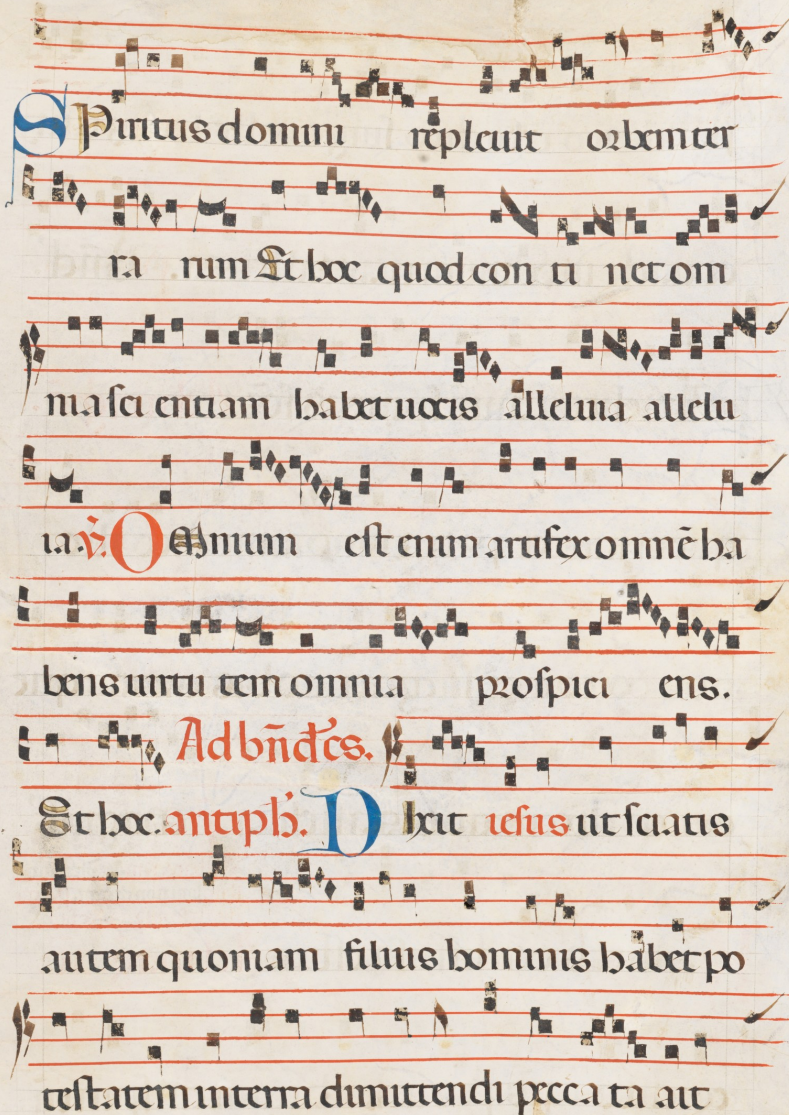 Spiritus domini repleuit orbem ter
ra rum Et hoc quod con ti net om
nia sci entiam habet uocis alleluia allelu
ia. v̄. Omnium est enim artifex omnē ha
bens uirtu tem omnia prospici ens.
Et hoc. Ad bn̄dc̄s. antiph̄. Dixit iesus ut sciatis
autem quoniam filius hominis habet po
testatem in terra dimittendi pecca ta ait